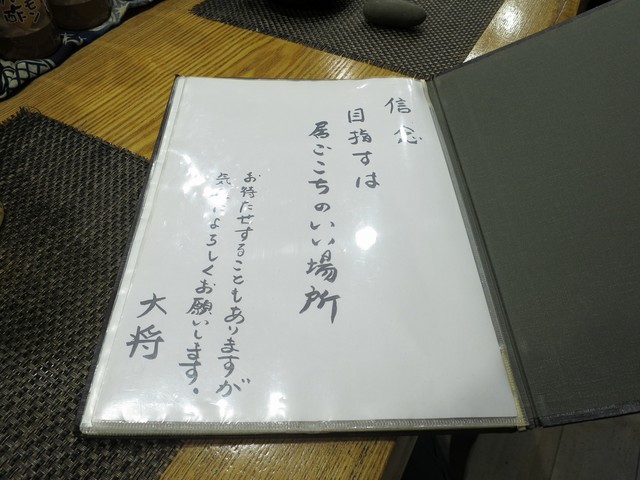 信念
目指すは
居ごこちのいい場所
お待たせすることもありますが
よろしくお願いします。
大将